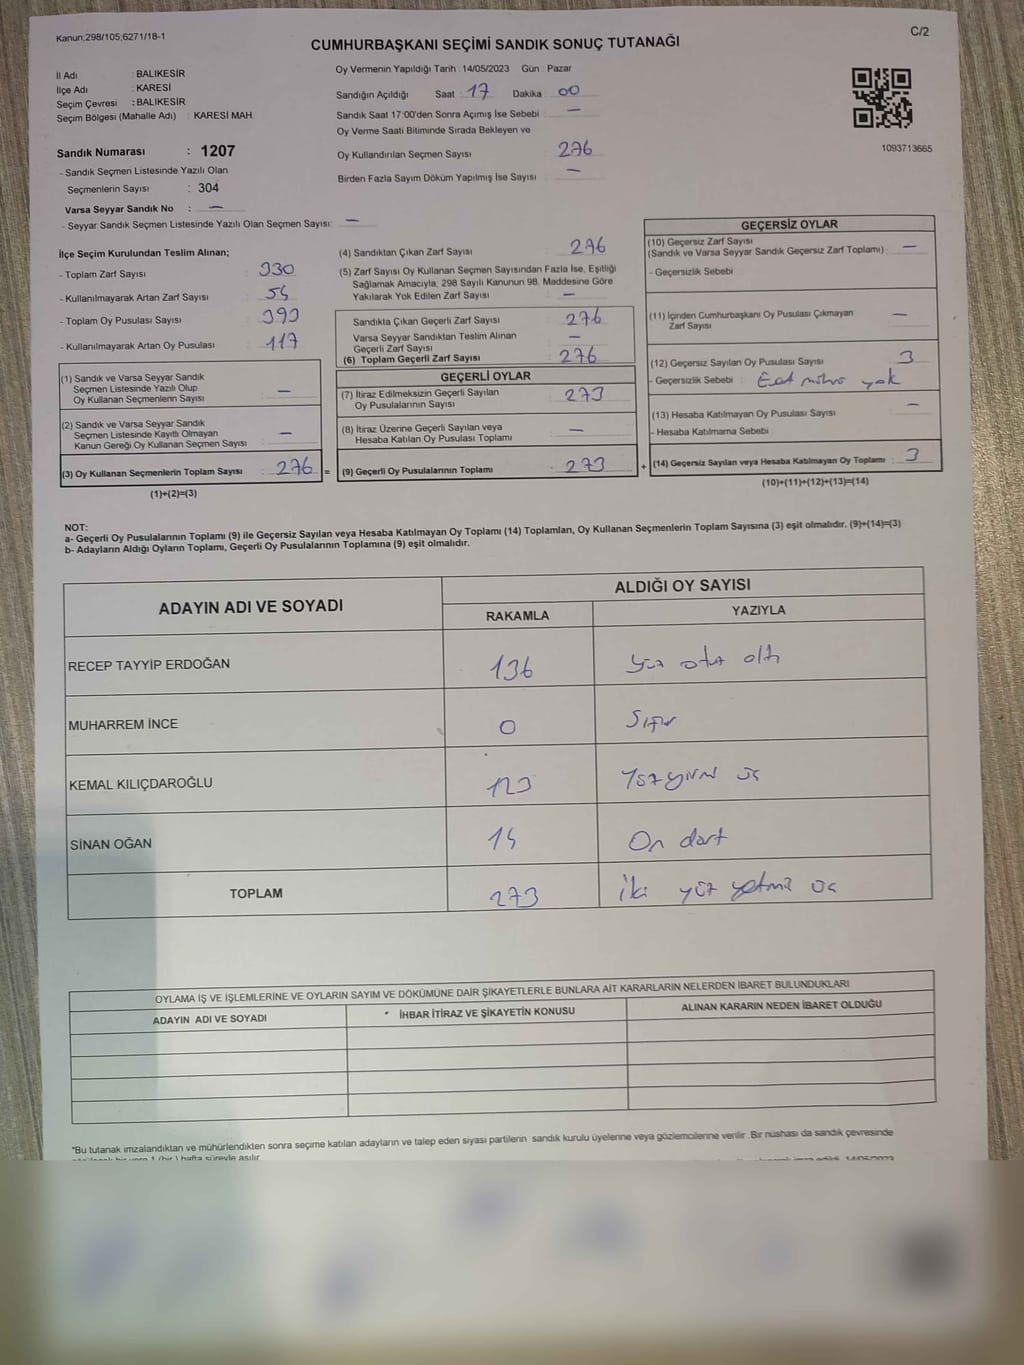 Kanun;298/105;6271/18-1
C/2
CUMHURBAŞKANI SEÇİMİ SANDIK SONUÇ TUTANAĞI
İl Adı : BALIKESİR
İlçe Adı : KARESİ
Seçim Çevresi : BALIKESİR
Seçim Bölgesi (Mahalle Adı) : KARESİ MAH.
Sandık Numarası : 1207
- Sandık Seçmen Listesinde Yazılı Olan
Seçmenlerin Sayısı : 304
Varsa Seyyar Sandık No : —
- Seyyar Sandık Seçmen Listesinde Yazılı Olan Seçmen Sayısı: —
Oy Vermenin Yapıldığı Tarih : 14/05/2023 Gün : Pazar
Sandığın Açıldığı Saat : 17 Dakika : 00
Sandık Saat 17:00'den Sonra Açımış İse Sebebi : —
Oy Verme Saati Bitiminde Sırada Bekleyen ve
Oy Kullandırılan Seçmen Sayısı : 276
Birden Fazla Sayım Döküm Yapılmış İse Sayısı : —
1093713665
İlçe Seçim Kurulundan Teslim Alınan;
- Toplam Zarf Sayısı : 330
- Kullanılmayarak Artan Zarf Sayısı : 54
- Toplam Oy Pusulası Sayısı : 393
- Kullanılmayarak Artan Oy Pusulası : 117
(1) Sandık ve Varsa Seyyar Sandık
Seçmen Listesinde Yazılı Olup
Oy Kullanan Seçmenlerin Sayısı : —
(2) Sandık ve Varsa Seyyar Sandık
Seçmen Listesinde Kayıtlı Olmayan
Kanun Gereği Oy Kullanan Seçmen Sayısı : —
(3) Oy Kullanan Seçmenlerin Toplam Sayısı : 276 =
(1)+(2)=(3)
(4) Sandıktan Çıkan Zarf Sayısı : 276
(5) Zarf Sayısı Oy Kullanan Seçmen Sayısından Fazla İse, Eşitliği
Sağlamak Amacıyla; 298 Sayılı Kanunun 98. Maddesine Göre
Yakılarak Yok Edilen Zarf Sayısı : —
Sandıkta Çıkan Geçerli Zarf Sayısı : 276
Varsa Seyyar Sandıktan Teslim Alınan
Geçerli Zarf Sayısı : —
(6) Toplam Geçerli Zarf Sayısı : 276
GEÇERLİ OYLAR
(7) İtiraz Edilmeksizin Geçerli Sayılan
Oy Pusulalarının Sayısı : 273
(8) İtiraz Üzerine Geçerli Sayılan veya
Hesaba Katılan Oy Pusulası Toplamı : —
(9) Geçerli Oy Pusulalarının Toplamı : 273 +
GEÇERSİZ OYLAR
(10) Geçersiz Zarf Sayısı
(Sandık ve Varsa Seyyar Sandık Geçersiz Zarf Toplamı) : —
- Geçersizlik Sebebi :
(11) İçinden Cumhurbaşkanı Oy Pusulası Çıkmayan
Zarf Sayısı : —
(12) Geçersiz Sayılan Oy Pusulası Sayısı : 3
- Geçersizlik Sebebi : yok
(13) Hesaba Katılmayan Oy Pusulası Sayısı : —
- Hesaba Katılmama Sebebi :
(14) Geçersiz Sayılan veya Hesaba Katılmayan Oy Toplamı : 3
(10)+(11)+(12)+(13)=(14)
NOT:
a- Geçerli Oy Pusulalarının Toplamı (9) ile Geçersiz Sayılan veya Hesaba Katılmayan Oy Toplamı (14) Toplamları, Oy Kullanan Seçmenlerin Toplam Sayısına (3) eşit olmalıdır. (9)+(14)=(3)
b- Adayların Aldığı Oyların Toplamı, Geçerli Oy Pusulalarının Toplamına (9) eşit olmalıdır.
ADAYIN ADI VE SOYADI
ALDIĞI OY SAYISI
RAKAMLA YAZIYLA
RECEP TAYYİP ERDOĞAN 136 yüz otuz altı
MUHARREM İNCE 0 Sıfır
KEMAL KILIÇDAROĞLU 123 Yüz yirmi üç
SİNAN OĞAN 14 On dört
TOPLAM 273 iki yüz yetmiş üç
OYLAMA İŞ VE İŞLEMLERİNE VE OYLARIN SAYIM VE DÖKÜMÜNE DAİR ŞİKAYETLERLE BUNLARA AİT KARARLARIN NELERDEN İBARET BULUNDUKLARI
ADAYIN ADI VE SOYADI * İHBAR İTİRAZ VE ŞİKAYETİN KONUSU ALINAN KARARIN NEDEN İBARET OLDUĞU
*Bu tutanak imzalandıktan ve mühürlendikten sonra seçime katılan adayların ve talep eden siyasi partilerin sandık kurulu üyelerine veya gözlemcilerine verilir. Bir nüshası da sandık çevresinde